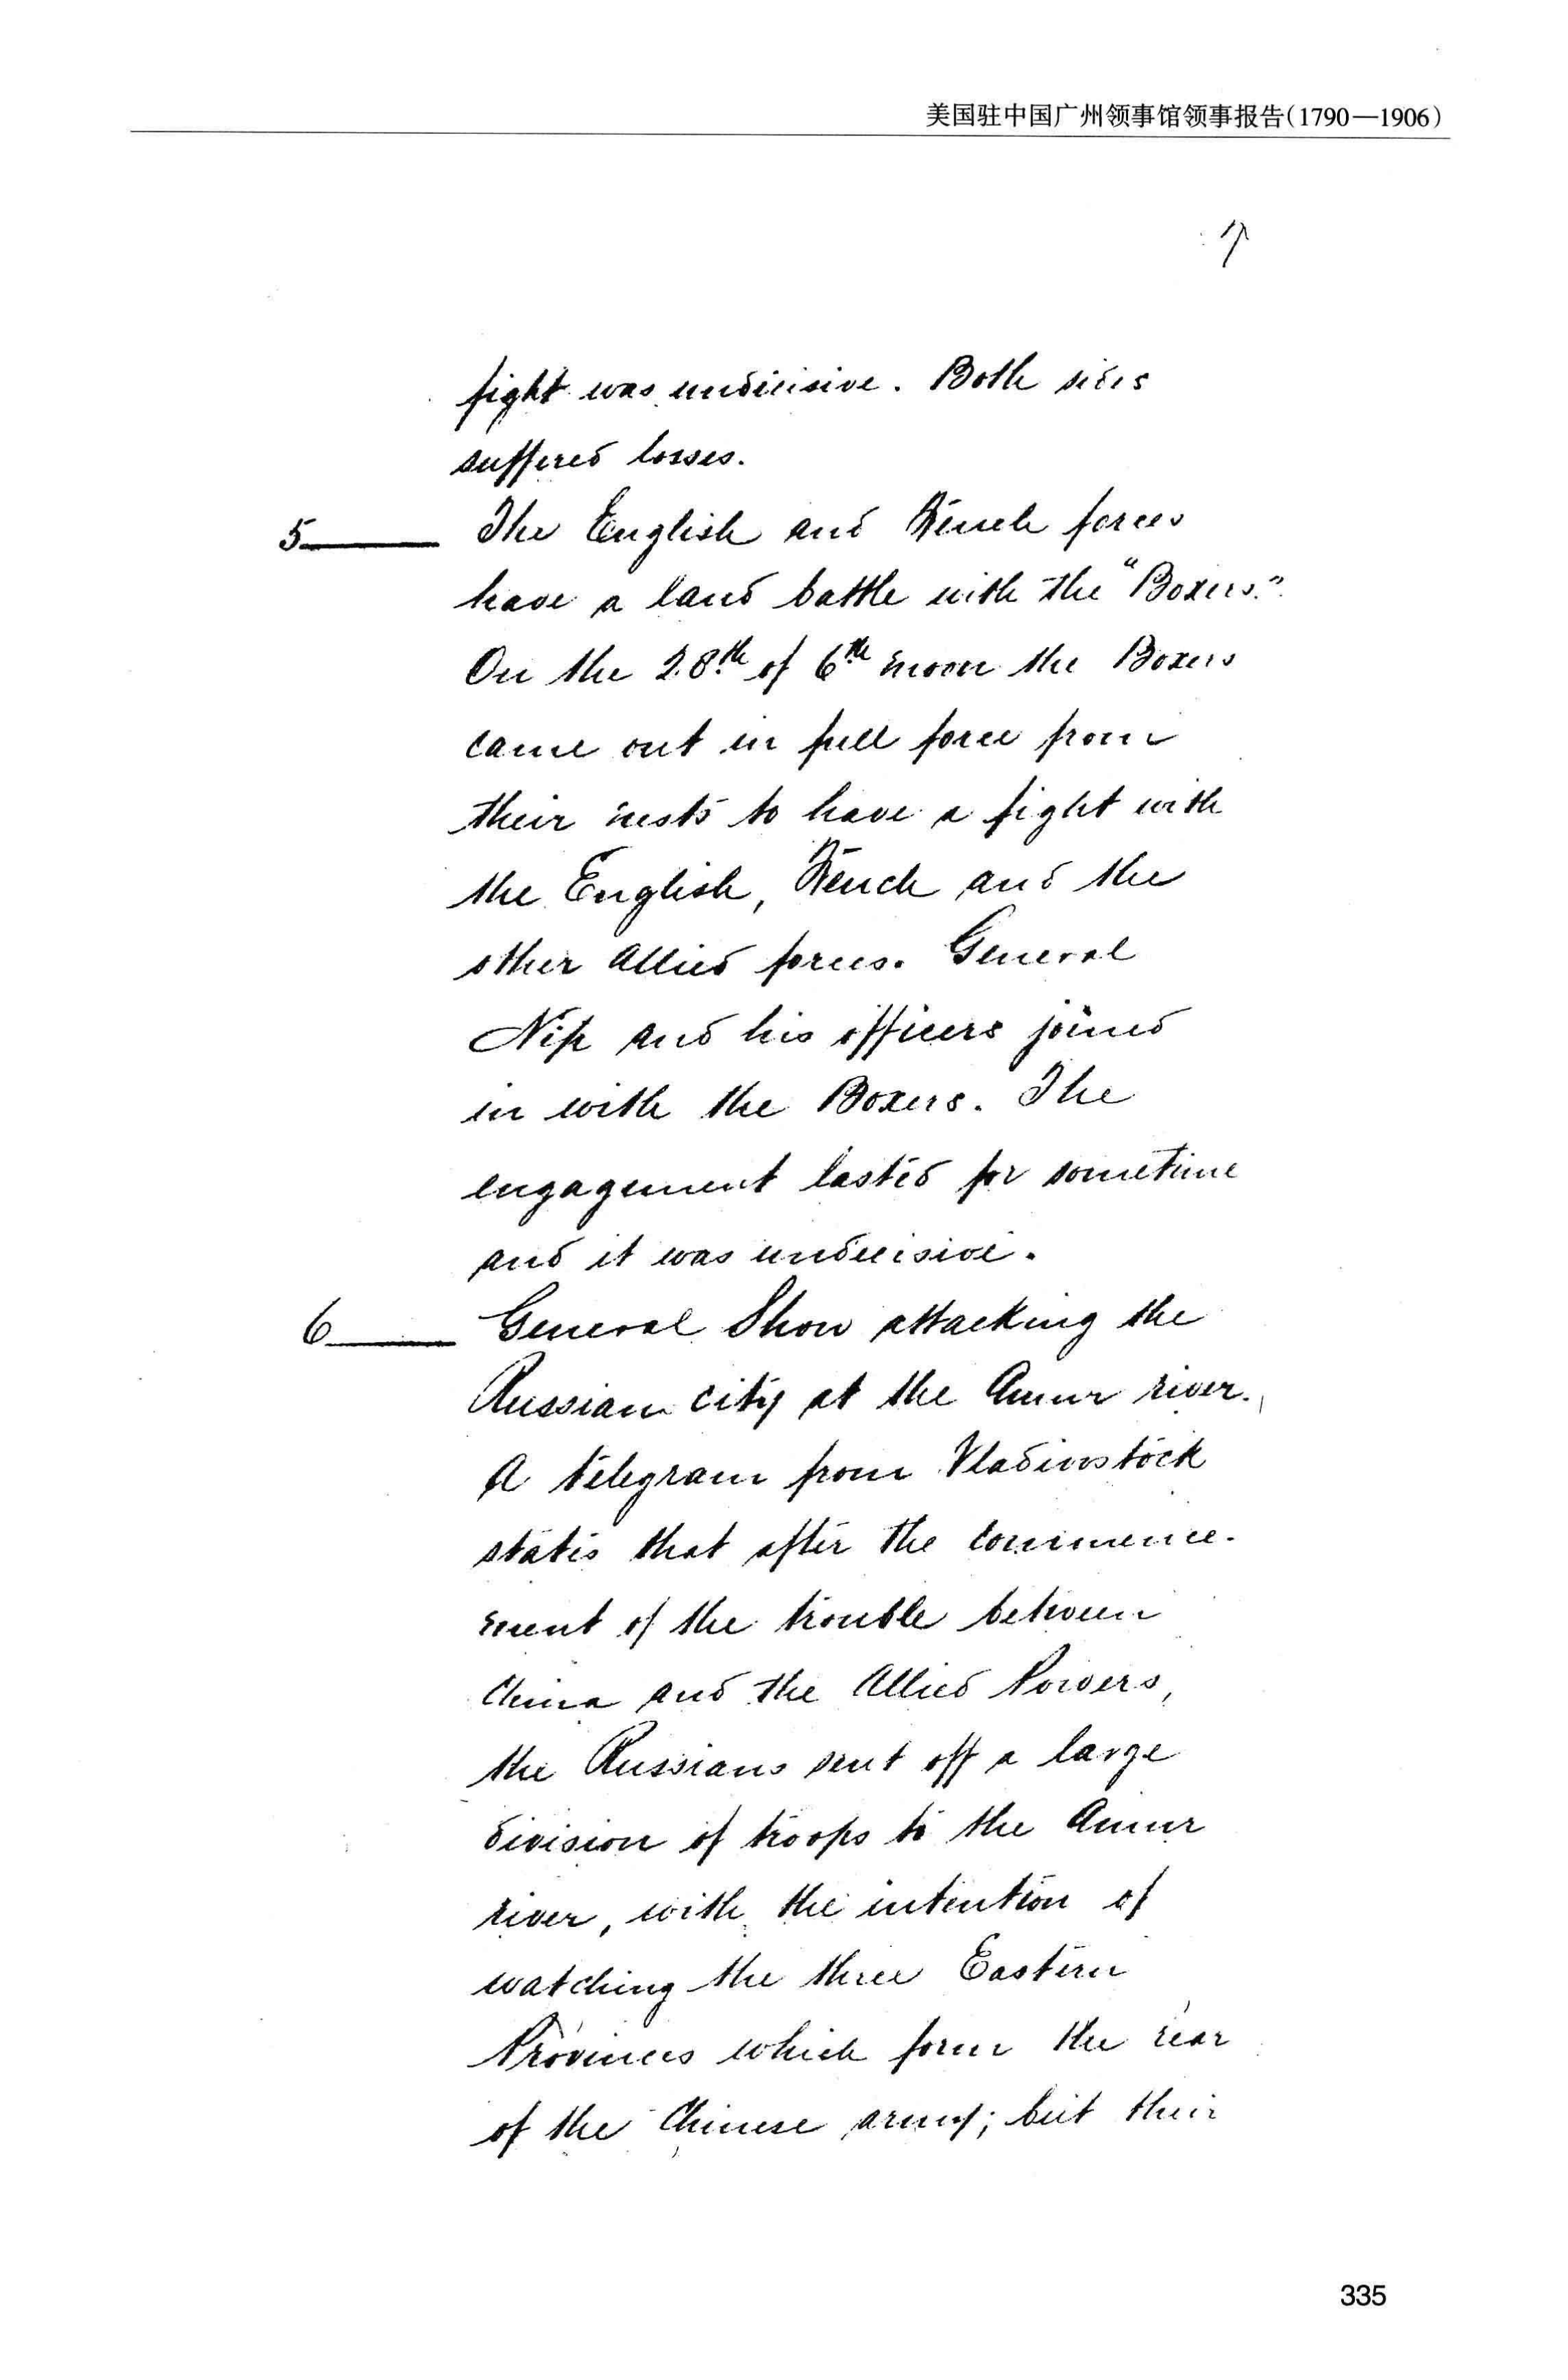 美国驻中国广州领事馆领事报告(1790—1906)
7
fight was undecisive. Both sides
suffered losses.
5 The English and French forces
have a land battle with the "Boxers."
On the 28th of 6th moon the Boxers
came out in full force from
their nests to have a fight with
the English, French and the
other Allied forces. General
Nip and his officers joined
in with the Boxers. The
engagement lasted for sometime
and it was undecisive.
6 General Show attacking the
Russian city at the Amur river.
A telegram from Vladivostock
states that after the commence-
ment of the trouble between
China and the Allied Powers,
the Russians sent off a large
division of troops to the Amur
river, with the intention of
watching the three Eastern
Provinces which form the rear
of the Chinese army; but their
335